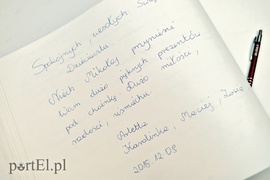 Spokojnych, wesołych Świąt
Niech Mikołaj przyniesie
Wam dużo pięknych prezentów
pod choinkę. Dużo
radości, uśmiechu, miłości,
Arletta
Karolinka, Maciej, Zosia
2015.12.09
portEl.pl